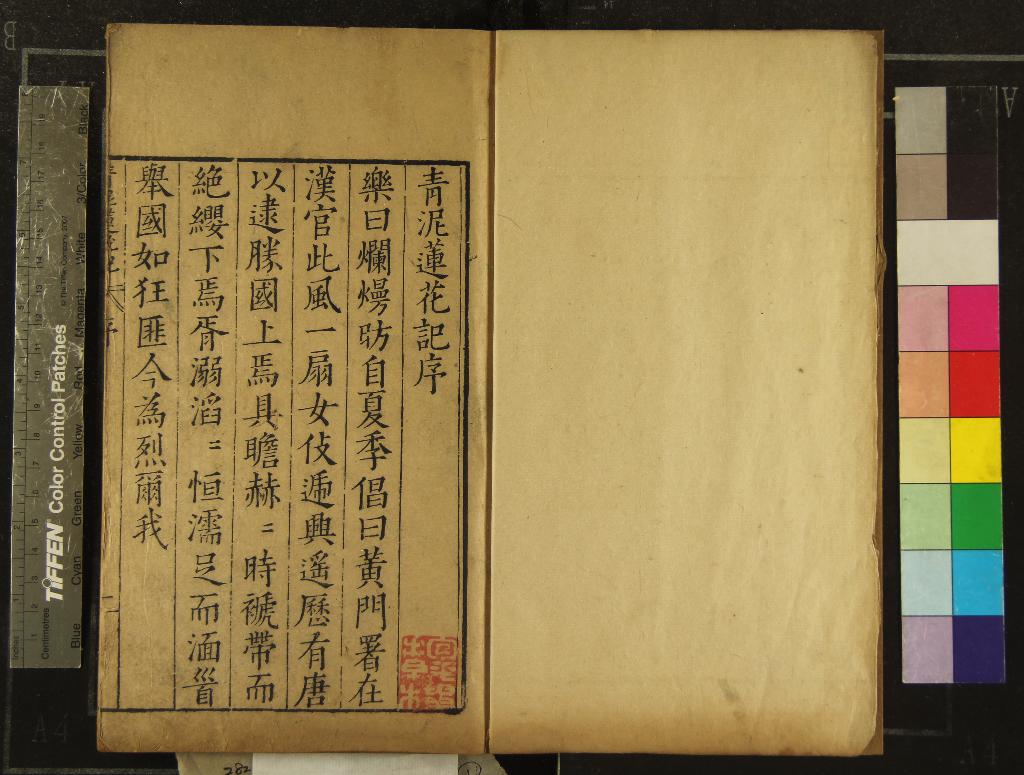 青泥蓮花記序
樂曰爛熳昉自夏季倡曰黃門署在
漢官此風一扇女伎逓興遥歷有唐
以逮勝國上焉具瞻赫〻時褫帶而
絶纓下焉胥溺滔〻恒濡足而湎䘒
舉國如狂匪今為烈爾我
序
TIFFEN Color Control Patches
© The Tiffen Company, 2007
Inches
Centimetres
Blue
Cyan
Green
Yellow
Red
Magenta
White
3/Color
Black
282
A4
B
A